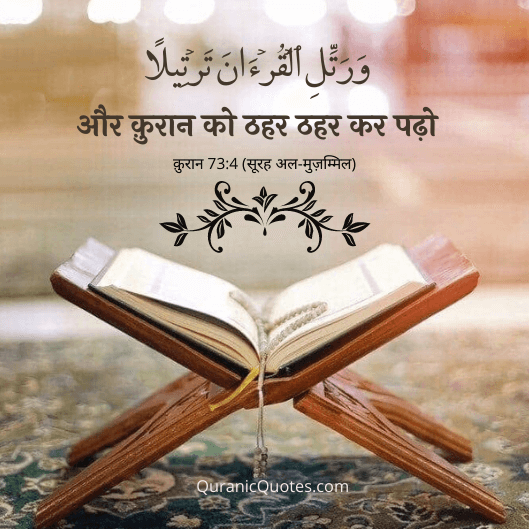 وَرَتِّلِ ٱلْقُرْءَانَ تَرْتِيلًا
और क़ुरान को ठहर ठहर कर पढ़ो
क़ुरान 73:4 (सूरह अल-मुज़म्मिल)
QuranicQuotes.com